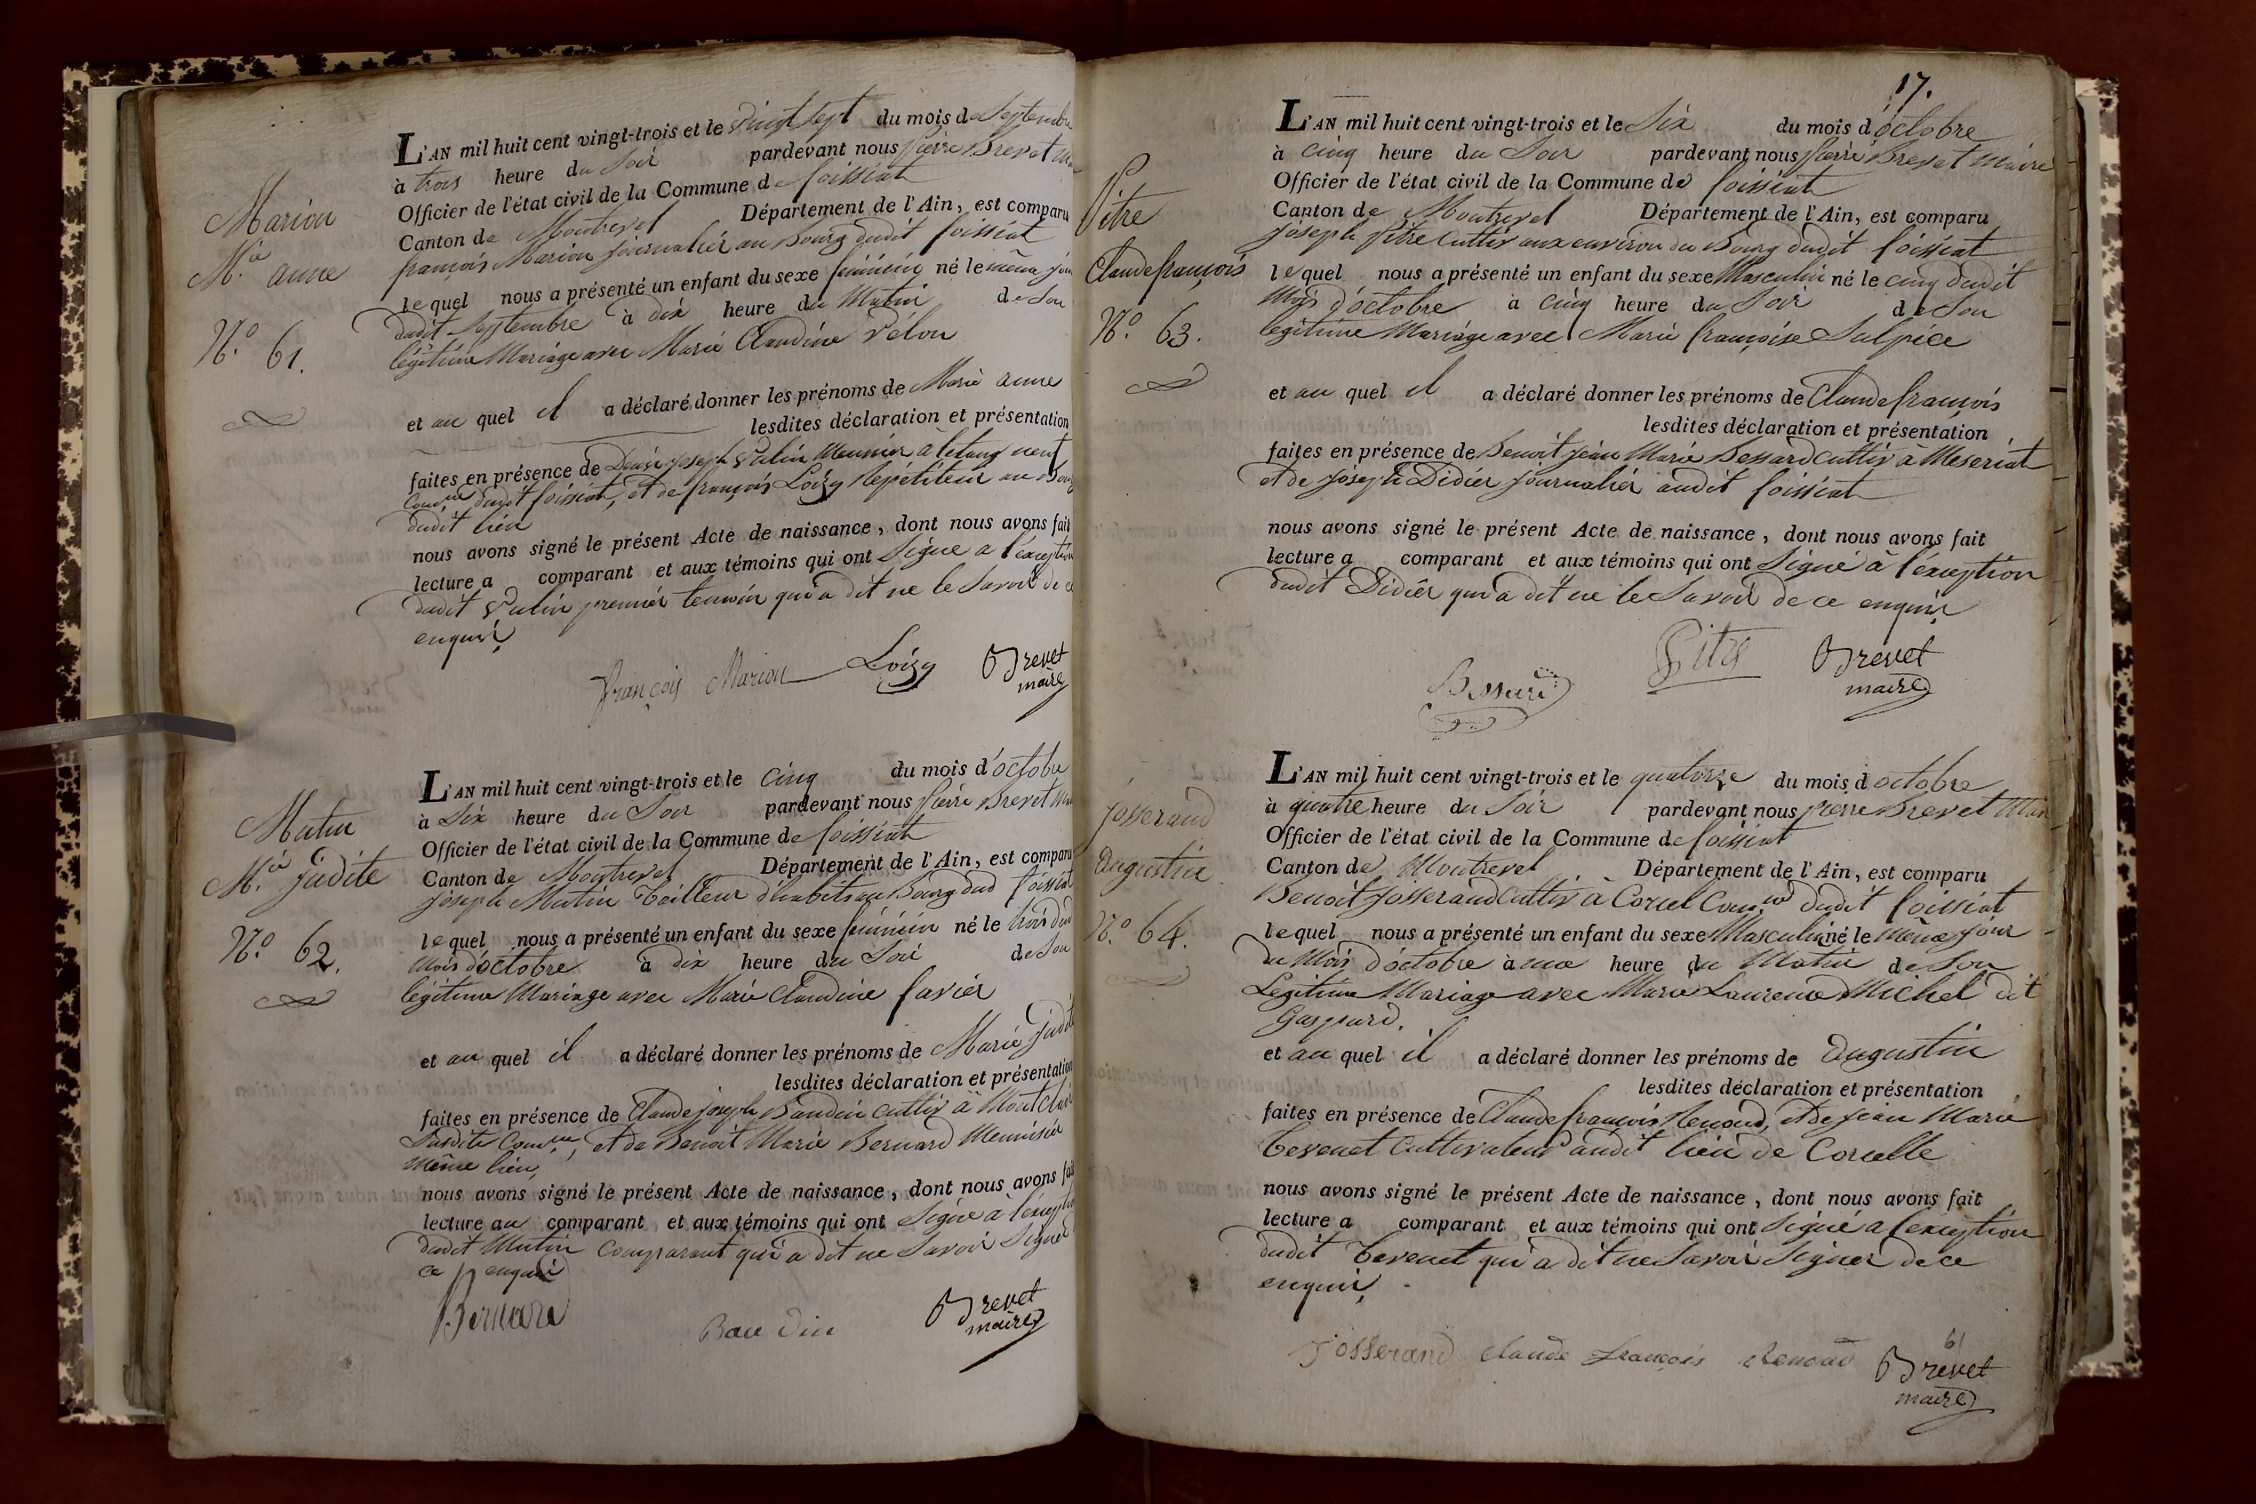 L'AN mil huit cent vingt-trois et le vingt sept du mois de Septembre
à trois heure du Soir pardevant nous pierre Brevet
Officier de l'état civil de la Commune de foissiat
Canton de Montrevel Département de l'Ain, est comparu
françois Marion journalier au Bourg dudit foissiat
lequel nous a présenté un enfant du sexe féminin né le même jour
dudit Septembre à dix heure du Matin de Son
légitime Mariage avec Marie Claudine Vélon
et au quel il a déclaré donner les prénoms de Marie anne
lesdites déclaration et présentation
faites en présence de Denis joseph Putin Meunier à létang neuf
Comne dudit foissiat, et de françois Loizy Répétiteur au Bourg
dudit lieu
nous avons signé le présent Acte de naissance, dont nous avons fait
lecture a comparant et aux témoins qui ont Signé a l'exception
dudit Putin premier temoin qui a dit ne le Savoir de ce
enquis,
françois Marion Loizy Brevet
maire
Marion
M.ie anne
N.o 61.
L'AN mil huit cent vingt-trois et le cinq du mois d'octobre
à Six heure du Soir pardevant nous pierre Brevet
Officier de l'état civil de la Commune de foissiat
Canton de Montrevel Département de l'Ain, est comparu
joseph Mutin Tailleur d'habits au Bourg dud foissiat
lequel nous a présenté un enfant du sexe féminin né le trois dud
Mois d'octobre à dix heure du Soir de Son
légitime Mariage avec Marie Claudine favier
et au quel il a déclaré donner les prénoms de Marie judite
lesdites déclaration et présentation
faites en présence de Claude joseph Baudin cultiv à Montclair
Susdite Comne, et de Benoit Marie Bernard Menuisier
même lieu,
nous avons signé le présent Acte de naissance, dont nous avons fait
lecture au comparant et aux témoins qui ont Signé à l'exception
dudit Mutin comparant qui a dit ne Savoir Signer
ce enquis
Bernard Baudin Brevet
maire
Mutin
M.ie judite
N.o 62.
17.
L'AN mil huit cent vingt-trois et le Six du mois d'octobre
à cinq heure du Soir pardevant nous pierre Brevet Maire
Officier de l'état civil de la Commune de foissiat
Canton de Montrevel Département de l'Ain, est comparu
joseph pitre Cultiv aux environ du Bourg dudit foissiat
lequel nous a présenté un enfant du sexe Masculin né le cinq dudit
Mois d'octobre à cinq heure du Soir de Son
légitime Mariage avec Marie françoise Sulpice
et au quel il a déclaré donner les prénoms de Claude françois
lesdites déclaration et présentation
faites en présence de Benoit jean Marie Bessard cultiv à Meseriat
et de joseph Didier journalier audit foissiat
nous avons signé le présent Acte de naissance, dont nous avons fait
lecture a comparant et aux témoins qui ont Signé à l'exception
dudit Didier qui a dit ne le Savoir de ce enquis
Bessard Pitre Brevet
maire
Pitre
Claude françois
N.o 63.
L'AN mil huit cent vingt-trois et le quatorze du mois d octobre
à quatre heure du Soir pardevant nous pierre Brevet
Officier de l'état civil de la Commune de foissiat
Canton de Montrevel Département de l'Ain, est comparu
Benoit Josserand Cultiv à Corcel Comne dudit foissiat
lequel nous a présenté un enfant du sexe Masculin né le même jour
du Mois d'octobre à une heure du Matin de Son
Légitime Mariage avec Marie Laurence Michel dit
Gaspard.
et au quel il a déclaré donner les prénoms de augustin
lesdites déclaration et présentation
faites en présence de Claude françois Renoud, et de jean Marie
Tevenet Cultivateurs audit lieu de Corcelle
nous avons signé le présent Acte de naissance, dont nous avons fait
lecture a comparant et aux témoins qui ont Signé a l'exception
dudit Tevenet qui a dit ne Savoir Signer de ce
enquis,
Josserand claude françois Renoud Brevet
maire
61
Josserand
augustin
N.o 64.